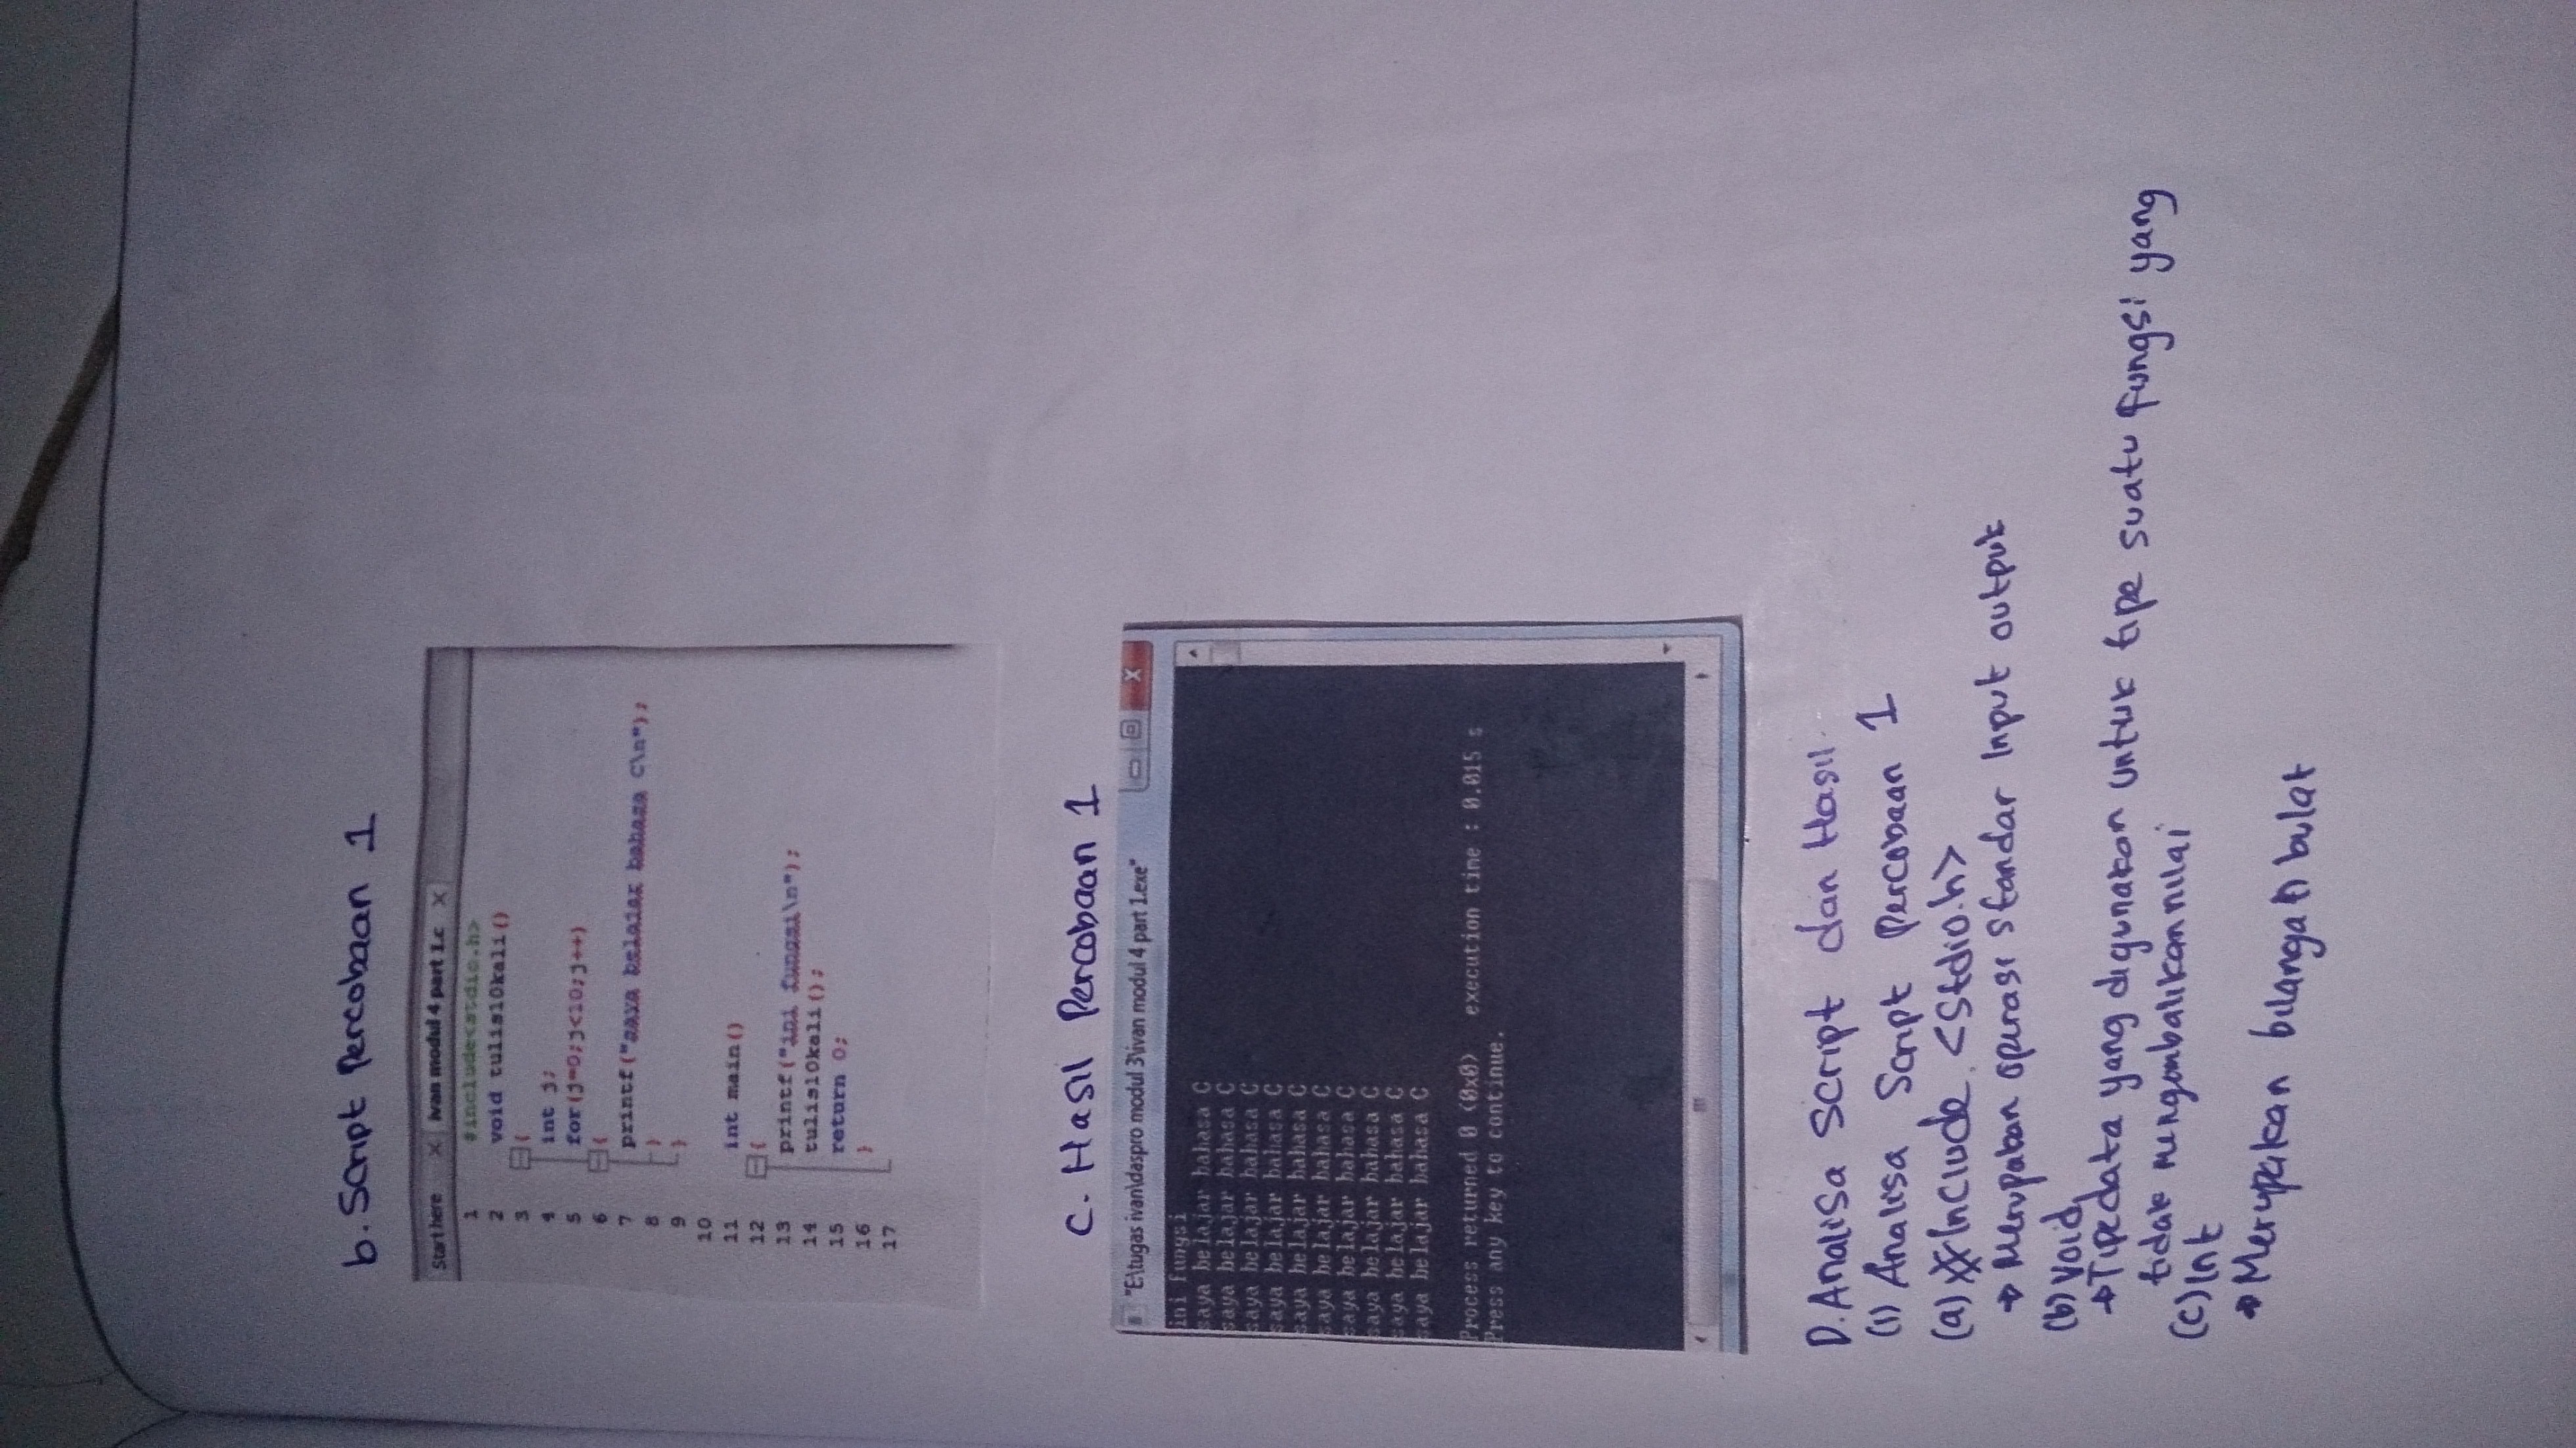 b. Script Percobaan 1
Start here X ivan modul 4 part 1.c X
1 #include<stdio.h>
2 void tulis10kali()
3 {
4 int j;
5 for(j=0;j<10;j++)
6 {
7 printf("saya belajar bahasa C\n");
8 }
9 }
10
11 int main()
12 {
13 printf("ini fungsi\n");
14 tulis10kali();
15 return 0;
16 }
17
C. Hasil Percobaan 1
"E:\tugas ivan\daspro modul 3\ivan modul 4 part 1.exe"
ini fungsi
saya belajar bahasa C
saya belajar bahasa C
saya belajar bahasa C
saya belajar bahasa C
saya belajar bahasa C
saya belajar bahasa C
saya belajar bahasa C
saya belajar bahasa C
saya belajar bahasa C
saya belajar bahasa C
Process returned 0 (0x0) execution time : 0.015 s
Press any key to continue.
D. Analisa Script dan Hasil.
(1) Analisa Script Percobaan 1
(a) #include <stdio.h>
→ Merupakan operasi standar input output
(b) Void
→ Tipe data yang digunakan untuk tipe suatu fungsi yang
tidak mengembalikan nilai
(c) Int
→ Merupakan bilangan bulat